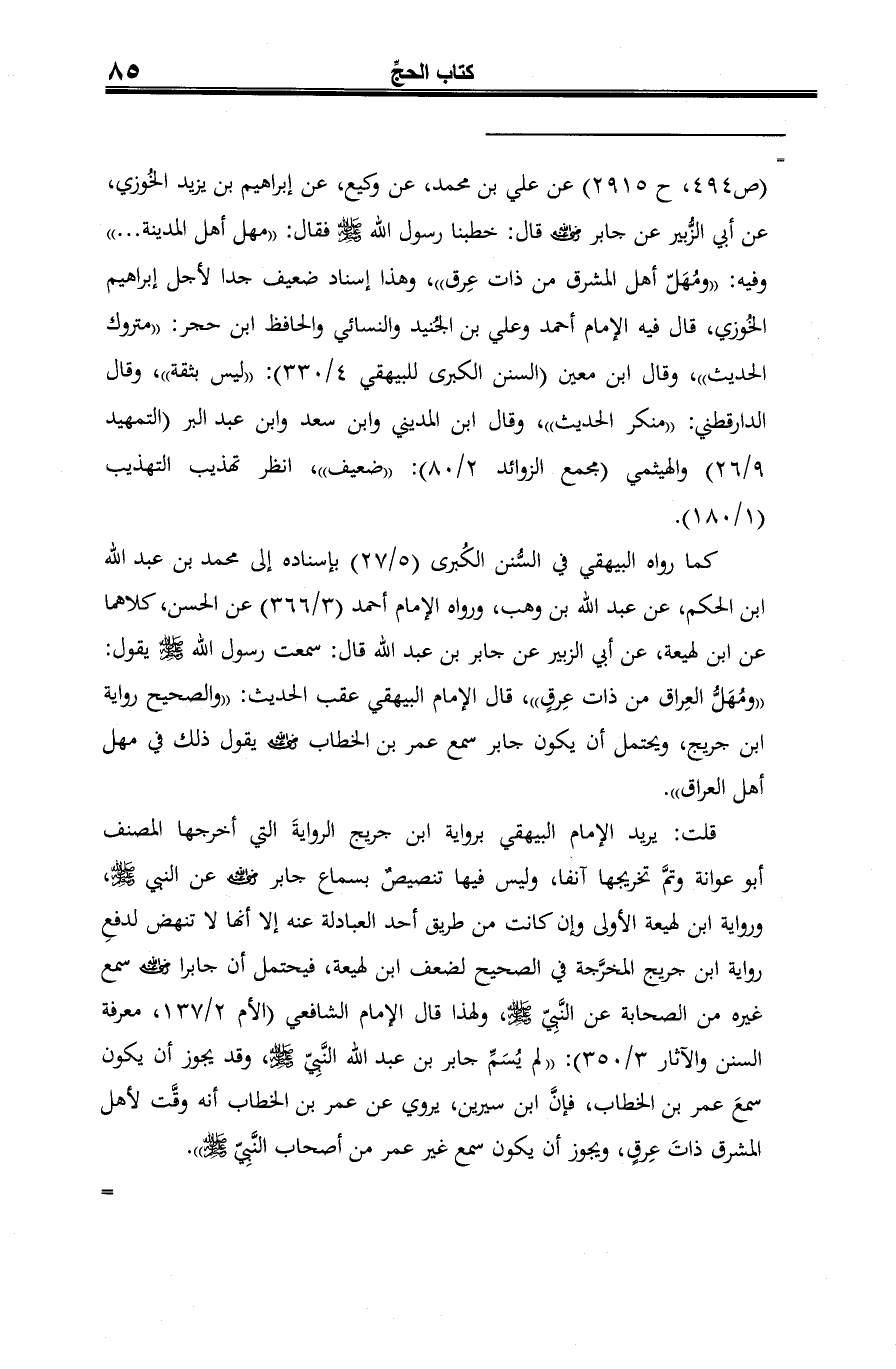 كتاب الحجِّ ٨٥
=
(ص٤٩٤، ح ٢٩١٥) عن علي بن محمد، عن وكيع، عن إبراهيم بن يزيد الخُوزي،
عن أبي الزُّبير عن جابر ﵁ قال: خطبنا رسول الله ﷺ فقال: «مهل أهل المدينة...»
وفيه: «ومُهَلّ أهل المشرق من ذات عِرق»، وهذا إسناد ضعيف جدا لأجل إبراهيم
الخُوزي، قال فيه الإمام أحمد وعلي بن الجُنيد والنسائي والحافظ ابن حجر: «متروك
الحديث»، وقال ابن معين (السنن الكبرى للبيهقي ٣٣٠/٤): «ليس بثقة»، وقال
الدارقطني: «منكر الحديث»، وقال ابن المديني وابن سعد وابن عبد البر (التمهيد
٢٦/٩) والهيثمي (مجمع الزوائد ٨٠/٢): «ضعيف»، انظر تهذيب التهذيب
(١٨٠/١).
كما رواه البيهقي في السُّنن الكُبرى (٢٧/٥) بإسناده إلى محمد بن عبد الله
ابن الحكم، عن عبد الله بن وهب، ورواه الإمام أحمد (٣٦٦/٣) عن الحسن، كلاهما
عن ابن لهيعة، عن أبي الزبير عن جابر بن عبد الله قال: سمعت رسول الله ﷺ يقول:
«ومُهَلُّ العِراق من ذات عِرقٍ»، قال الإمام البيهقي عقب الحديث: «والصحيح رواية
ابن جريج، ويحتمل أن يكون جابر سمع عمر بن الخطاب ﵁ يقول ذلك في مهل
أهل العراق».
قلت: يريد الإمام البيهقي برواية ابن جريج الروايةَ التي أخرجها المصنف
أبو عوانة وتمَّ تخريجها آنفا، وليس فيها تنصيصٌ بسماع جابر ﵁ عن النبي ﷺ،
ورواية ابن لهيعة الأولى وإن كانت من طريق أحد العبادلة عنه إلا أنها لا تنهض لدفعِ
رواية ابن جريج المخرَّجة في الصحيح لضعف ابن لهيعة، فيحتمل أن جابرا ﵁ سمع
غيره من الصحابة عن النَّبِيّ ﷺ، ولهذا قال الإمام الشافعي (الأم ١٣٧/٢، معرفة
السنن والآثار ٣٥٠/٣): «لم يُسَمِّ جابر بن عبد الله النَّبِيّ ﷺ، وقد يجوز أن يكون
سمعَ عمر بن الخطاب، فإنَّ ابن سيرين، يروي عن عمر بن الخطاب أنه وقَّت لأهل
المشرق ذاتَ عِرقٍ، ويجوز أن يكون سمع غير عمر من أصحاب النَّبِيّ ﷺ».
=